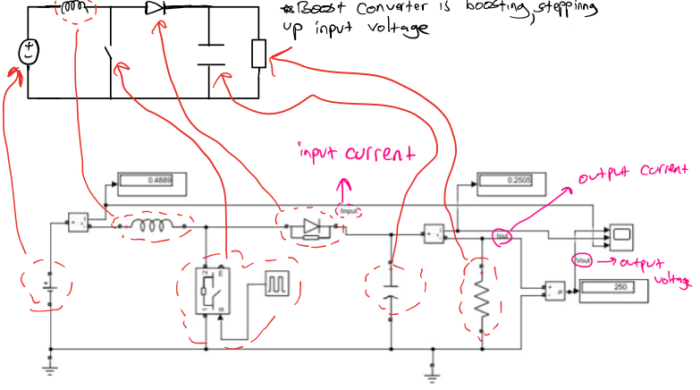 * Boost Converter is boosting, stepping
up input voltage
input current
output current
0.4889
0.2505
Iinput
Iout
Vout
output
voltage
250